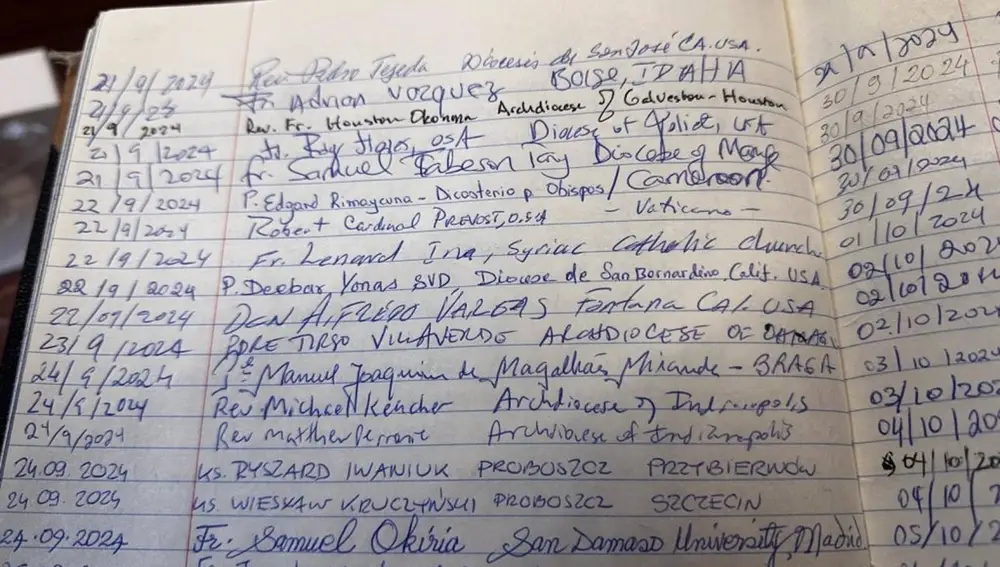 21/9/2024 Rev. Pedro Tejeda Diócesis de San José CA. USA.
Fr. Adrian Vazquez BOISE, IDAHA
21/9/2024 Rev. Fr. Houston Okonma Archdiocese of Galveston-Houston
21/9/2024 Fr. Ray Flores, OSA Diocese of Joliet, USA
21/9/2024 Fr. Samuel Tabeson Diocese of Mamfe
22/9/2024 P. Edgard Rimaycuna - Dicasterio p. Obispos / Cameroon.
22/9/2024 Robert Cardinal PREVOST, O.S.A - Vaticano -
22/9/2024 Fr. Lenard Ina, Syriac Catholic church
22/9/2024 P. Deebar Yonas SVD, Diocese de San Bernardino, Calif. USA
22/09/2024 DCN ALFREDO VARGAS Fontana CAL. USA
23/9/2024 PDRE TIRSO VILLAVERDE ARCHDIOCESE OF
24/9/2024 Manuel Joaquim de Magalhães Miranda - BRAGA
24/9/2024 Rev Michael Keucher Archdiocese of Indianapolis
24/9/2024 Rev Matthew Perronie Archdiocese of Indianapolis
24.09.2024 KS. RYSZARD IWANIUK PROBOSZCZ PRZYBIERNÓW
24.09.2024 KS. WIESŁAW KRUCZYŃSKI PROBOSZCZ SZCZECIN
24.09.2024 Fr. Samuel Okiria San Damaso University, Madrid
30/9/2024
30/9/2024
30/09/2024
30/09/2024
30/09/24
01/10/2024
02/10/202
02/10/2024
02/10/2024
03/10/2024
03/10/202
04/10/20
04/10/20
04/10/
05/10/2